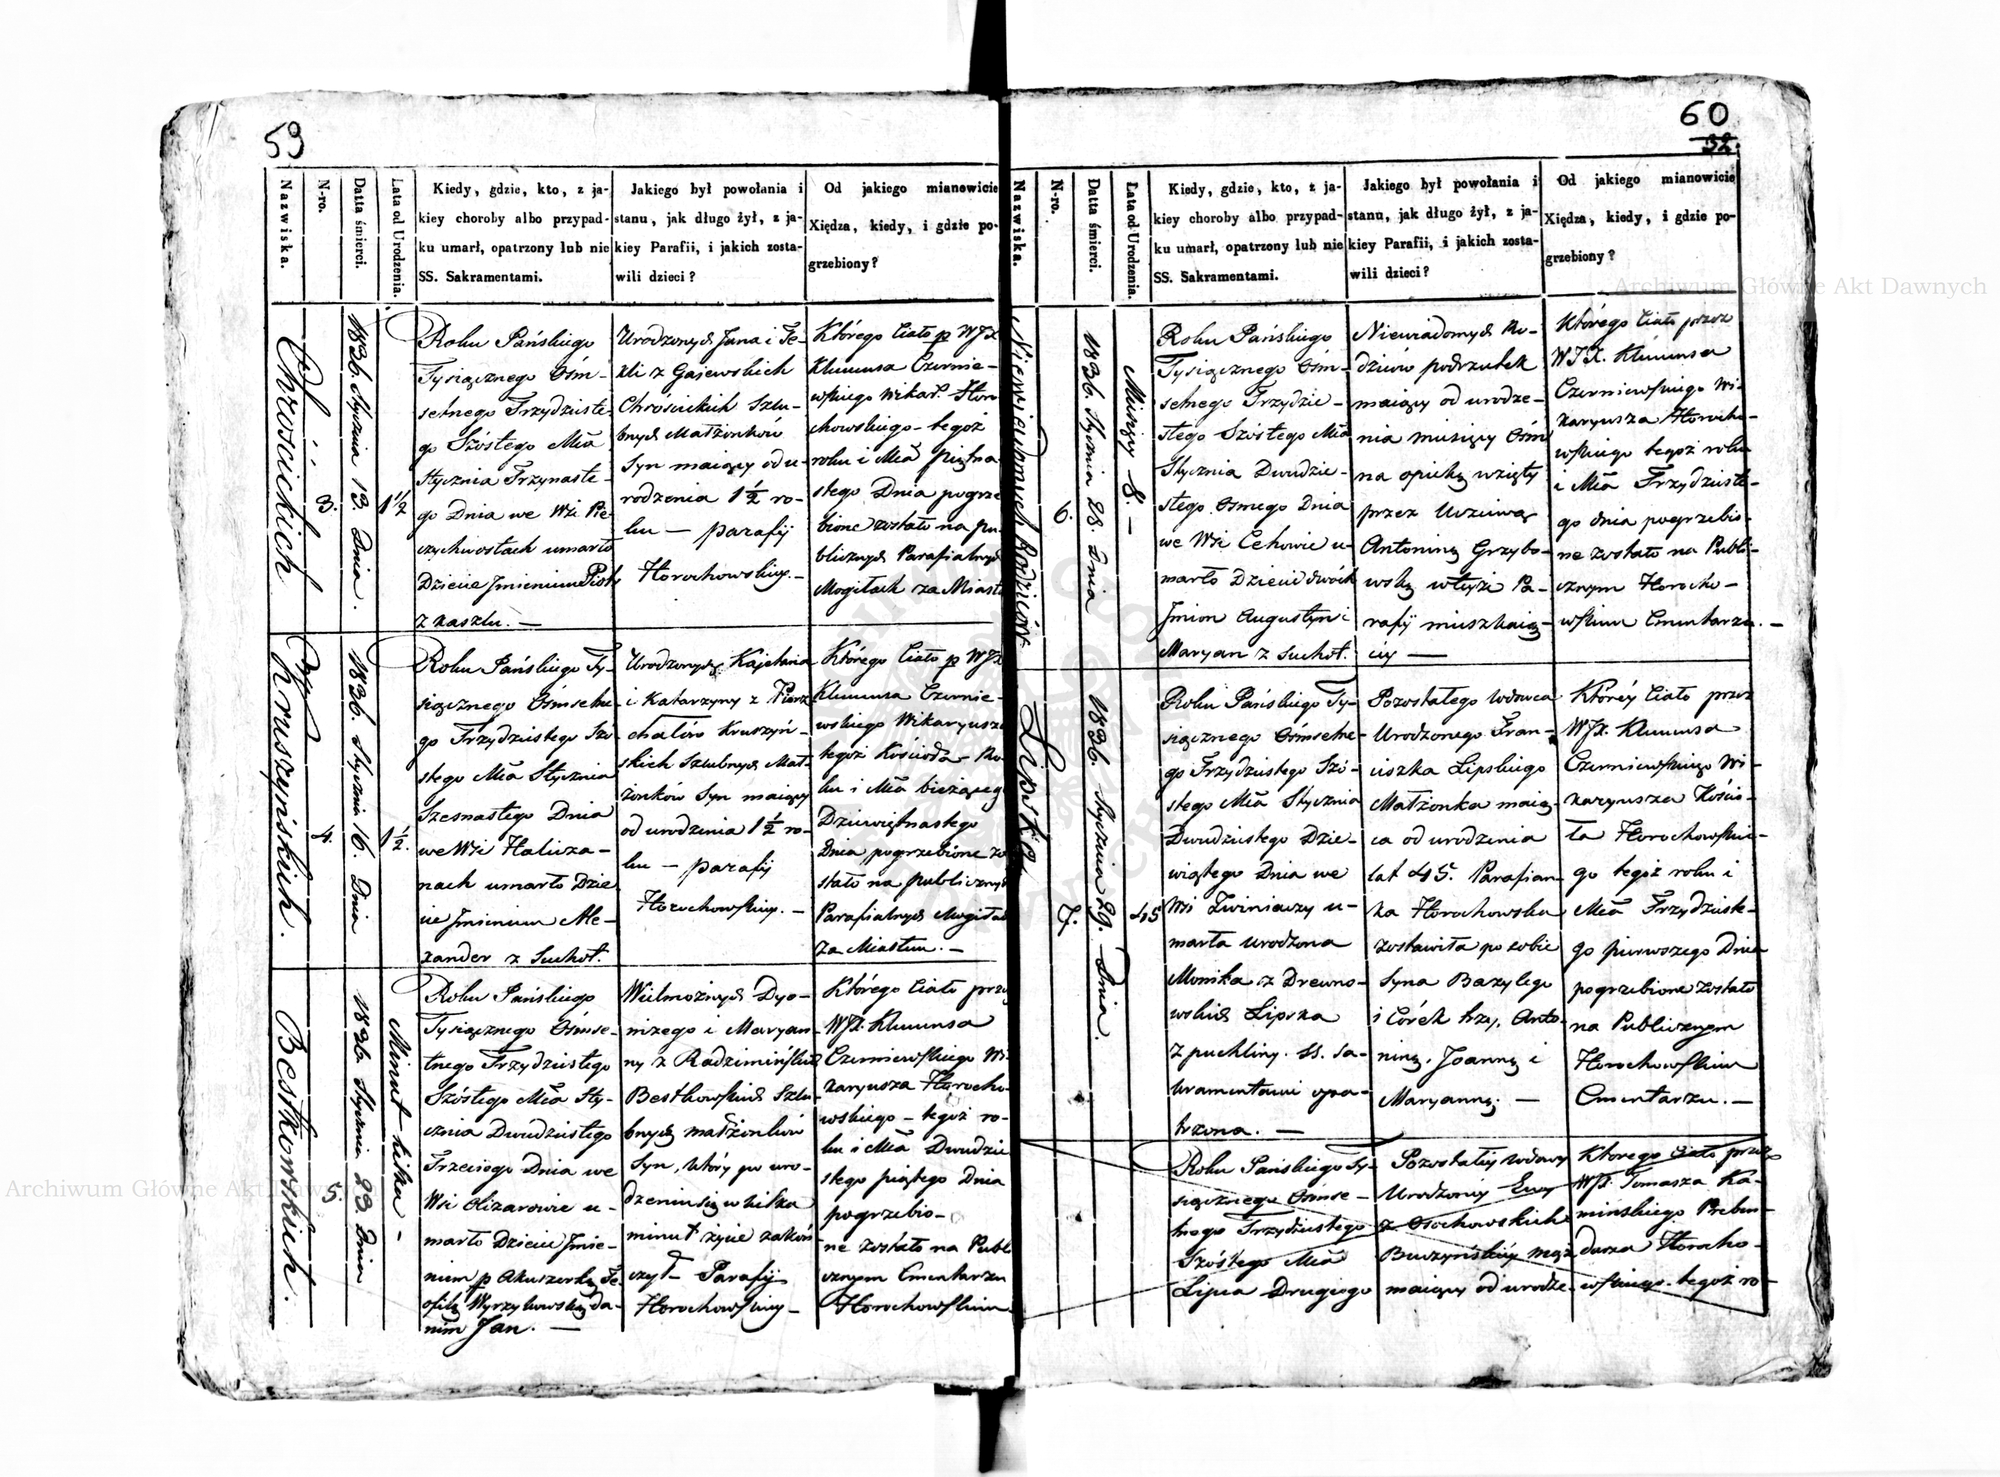 59
Nazwiska.
N-ro.
Datta śmierci.
Lata od Urodzenia.
Kiedy, gdzie, kto, z ja-
kiey choroby albo przypad-
ku umarł, opatrzony lub nie
SS. Sakramentami.
Jakiego był powołania i
stanu, jak długo żył, z ja-
kiey Parafii, i jakich zosta-
wili dzieci?
Od jakiego mianowicie
Xiędza, kiedy, i gdzie po-
grzebiony?
Chróścickich
3.
1836. Stycznia 13. Dnia.
1½
Roku Pańskiego
Tysiącznego Ośm-
setnego Trzydzieste-
go Szóstego Mca
Stycznia Trzynaste-
go Dnia we Wsi Pie-
czychwostach umarło
Dziecie Jmieniem Piotr
z kaszlu. —
Urodzonych Jana i Te-
kli z Gajewskich
Chróścickich Szlu-
bnych Małżonków
Syn maiący od u-
rodzenia 1½ ro-
ku — parafij
Horochowskiey. —
Którego Ciało p WJX
Klemensa Czernie-
wskiego Wikar. Horo
chowskiego — tegoż
roku i Mca piętna-
stego Dnia pogrze
bione zostało na pu-
blicznych Parafialnych
Mogiłach za Miaste
Chruszyńskich.
4.
1836. Stycznia 16. Dnia
1½.
Roku Pańskiego Ty-
siącznego Ośmsetne
go Trzydziestego Szó
stego Mca Stycznia
Szesnastego Dnia
we Wsi Halicza-
nach umarło Dzie
cie Jmieniem Ale-
xander z Suchot.
Urodzonych Kajetana
i Katarzyny z Piarz
chałów Kruszyń-
skich Szlubnych Mał-
żonków Syn maiący
od urodzenia 1½ ro-
ku — parafij
Horochowskiey. —
Którego Ciało p WJX
Klemensa Czernie-
wskiego Wikaryusza
tegoż Kościoła — Ro-
ku i Mca bieżącego
Dziewiętnastego
Dnia pogrzebione zo
stało na publicznych
Parafialnych Mogiłach
za Miastem. —
Bestkowskich.
5.
1836. Stycznia 23. Dnia
Minut kilka -
Roku Pańskiego
Tysiącznego Ośmse-
tnego Trzydziestego
Szóstego Mca Sty-
cznia Dwudziestego
Trzeciego Dnia we
Wsi Elizarowie u-
marło Dziecie Jmie-
niem p Akuszerkę Te
ofilę Wyrzykowską da-
nem Jan. —
Wielmożnych Dyo-
nizego i Maryan-
ny z Radzimińskich
Bestkowskich Szlu
bnych małżonków
Syn, który po uro-
dzeniu się w kilka
minut życie zakoń
czył — Parafij
Horochowskiey —
Którego Ciało przez
WJX. Klemensa
Czerniewskiego Wi-
karyusza Horocho-
wskiego — tegoż ro-
ku i Mca Dwudzie
stego piątego Dnia
pogrzebio-
ne zostało na Publi
cznym Cmentarzu
Horochowskim
60
32.
Nazwiska.
N-ro.
Datta śmierci.
Lata od Urodzenia.
Kiedy, gdzie, kto, z ja-
kiey choroby albo przypad-
ku umarł, opatrzony lub nie
SS. Sakramentami.
Jakiego był powołania i
stanu, jak długo żył, z ja-
kiey Parafii, i jakich zosta-
wili dzieci?
Od jakiego mianowicie
Xiędza, kiedy, i gdzie po-
grzebiony?
Niewiadomych Rodziców
6.
1836. Stycznia 28. Dnia
Miesięcy 8. —
Roku Pańskiego
Tysiącznego Ośm-
setnego Trzydzie-
stego Szóstego Mca
Stycznia Dwudzie-
stego Osmego Dnia
we Wsi Cehowie u-
marło Dziecie dwóch
Jmion Augustyn i
Maryan z Suchot.
Niewiadomych Ro-
dziców podrzutek
maiący od urodze-
nia miesięcy Ośm
na opiekę wzięty
przez Uczciwą
Antoninę Grzybo-
wską w tejże Pa-
rafij mieszkaią-
cey —
Którego Ciało przez
WJX. Klemensa
Czerniewskiego Wi-
karyusza Horocho-
wskiego tegoż roku
i Mca Trzydzieste-
go dnia pogrzebio-
ne zostało na Publi-
cznym Horocho-
wskim Cmentarzu. —
Lipska
7.
1836. Stycznia 29. Dnia.
45
Roku Pańskiego Ty-
siącznego Ośmsetne-
go Trzydziestego Szó-
stego Mca Stycznia
Dwudziestego Dzie-
wiątego Dnia we
Wsi Zwiniaczy u-
marła Urodzona
Monika z Drewno-
wskich Lipska
z puchliny. SS. Sa-
kramentami opa-
trzona. —
Pozostałego wdowca
Urodzonego Fran-
ciszka Lipskiego
Małżonka maią-
ca od urodzenia
lat 45. Parafian-
ka Horochowska
zostawiła po sobie
Syna Bazylego
i Córek trzy, Anto-
ninę, Joannę i
Maryannę. —
Któréy Ciało przez
WJX. Klemensa
Czerniewskiego Wi-
karyusza Kościo-
ła Horochowskie-
go tegoż roku i
Mca Trzydzieste-
go pierwszego Dnia
pogrzebione zostało
na Publicznym
Horochowskim
Cmentarzu. —
Roku Pańskiego Ty-
siącznego Ośmse-
tnego Trzydziestego
Szóstego Mca
Lipca Drugiego
Pozostałey wdowy
Urodzoney Ewy
z Osochowskich
Buczyńskiey mąż
maiący od urodze-
Którego Ciało przez
WJX. Tomasza Ka-
mińskiego Preben-
darza Horocho-
wskiego tegoż ro-
Archiwum Główne Akt Dawnych
Archiwum Główne Akt Dawnych